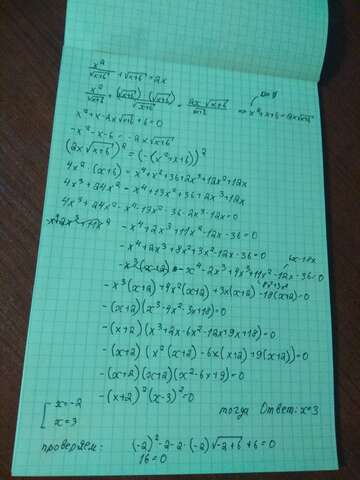 x²/√(x+6) + √(x+6) = 2x
x²/√(x+6) + (√(x+6))·(√(x+6))/√(x+6) = 2x√(x+6)/√(x+6) ⇒ x²+x+6=2x√(x+6)
x²+x-2x√(x+6)+6=0
-x²-x-6=-2x√(x+6)
(2x√(x+6))²=(-(x²+x+6))²
4x²·(x+6)=x⁴+x²+36+2x³+12x²+12x
4x³+24x²=x⁴+13x²+36+2x³+12x
4x³+24x²-x⁴-13x²-36-2x³-12x=0
-x⁴+2x³+11x²-12x-36=0
-x⁴+2x³+8x²+3x²-12x-36=0
6x-18x
-x³(x+2) -x⁴-2x³+4x³+11x²-12x-36=0
8x²+3x²
-x³(x+2)+4x²(x+2)+3x(x+2)-18(x+2)=0
-(x+2)(x³-4x²-3x+18)=0
-(x+2)(x³+2x-6x²-12x+9x+18)=0
-(x+2)(x²(x+2)-6x(x+2)+9(x+2))=0
-(x+2)(x+2)(x²-6x+9)=0
-(x+2)²(x-3)²=0
[x=-2
x=3
тогда Ответ: x=3
проверяем: (-2)²-2-2·(-2)√(-2+6)+6=0
16=0